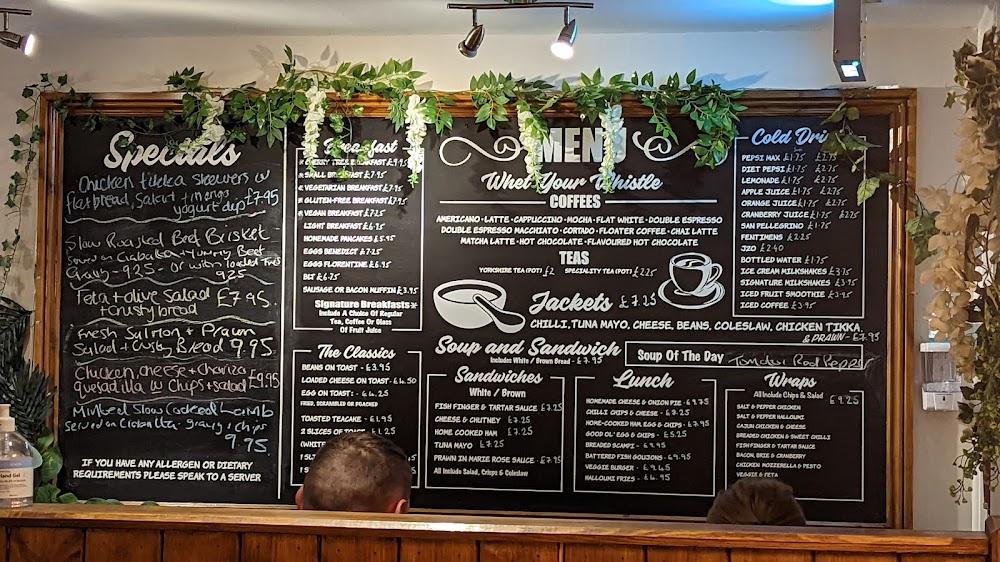 Specials
Chicken tikka skewers w
flatbread, salad + mango
yogurt dip £7.95
Slow Roasted Beef Brisket
Served on Ciabatta + Yummy Beef
Gravy - 9.25 - Or with loaded Fries
9.25
Feta + olive Salad £7.95
+ crusty bread
Fresh Salmon + Prawn
Salad + Crusty Bread 9.95
Chicken, cheese + chorizo
quesadilla w chips + salad £9.95
Minted Slow Cooked Lamb
Served on Ciabatta - gravy + chips
9.95
IF YOU HAVE ANY ALLERGEN OR DIETARY
REQUIREMENTS PLEASE SPEAK TO A SERVER
Breakfast
CHERRY TREE BREAKFAST £9.95
SMALL BREAKFAST £7.95
VEGETARIAN BREAKFAST
GLUTEN-FREE BREAKFAST £7.95
VEGAN BREAKFAST £7.25
LIGHT BREAKFAST
HOMEMADE PANCAKES £5.95
EGGS BENEDICT £7.25
EGGS FLORENTINE £6.95
BLT
SAUSAGE OR BACON MUFFIN £3.95
Signature Breakfasts
Include A Choice Of Regular
Tea, Coffee Or Glass
Of Fruit Juice
The Classics
BEANS ON TOAST - £3.95
LOADED CHEESE ON TOAST - £4.50
EGG ON TOAST: - £4.25
FRIED, SCRAMBLED OR POACHED
TOASTED TEACAKE - £1.95
2 SLICES OF TOAST £1.25
(WHITE
MENU
Whet Your Whistle
COFFEES
AMERICANO • LATTE • CAPPUCCINO • MOCHA • FLAT WHITE • DOUBLE ESPRESSO
DOUBLE ESPRESSO MACCHIATO • CORTADO • FLOATER COFFEE • CHAI LATTE
MATCHA LATTE • HOT CHOCOLATE • FLAVOURED HOT CHOCOLATE
TEAS
YORKSHIRE TEA (POT) £2 SPECIALITY TEA (POT) £2.25
Jackets £7.25
CHILLI, TUNA MAYO, CHEESE, BEANS, COLESLAW, CHICKEN TIKKA
& PRAWN - £7.95
Soup and Sandwich
Includes White / Brown Bread - £7.95
Soup Of The Day Tomato + Red Pepper
Sandwiches
White / Brown
FISH FINGER & TARTAR SAUCE £7.25
CHEESE & CHUTNEY £7.25
HOME COOKED HAM £7.25
TUNA MAYO £7.25
PRAWN IN MARIE ROSE SAUCE - £7.95
All Include Salad, Crisps & Coleslaw
Lunch
HOMEMADE CHEESE & ONION PIE - £9.75
CHILLI CHIPS & CHEESE - £7.25
HOME-COOKED HAM EGG & CHIPS - £7.95
GOOD OL' EGG & CHIPS - £5.25
BREADED SCAMPI - £9.95
BATTERED FISH GOUJONS - £9.95
VEGGIE BURGER - £9.45
HALLOUMI FRIES - £4.95
Wraps
All Include Chips & Salad
£9.25
SALT & PEPPER CHICKEN
SALT & PEPPER HALLOUMI
CAJUN CHICKEN & CHEESE
BREADED CHICKEN & SWEET CHILLI
FISHFINGER & TARTAR SAUCE
BACON, BRIE & CRANBERRY
CHICKEN MOZZERELLA & PESTO
VEGGIE & FETA
Cold Drinks
PEPSI MAX £1.75 £2.75
DIET PEPSI £1.75 £2.75
LEMONADE £1.75 £2.75
APPLE JUICE £1.75 £2.75
ORANGE JUICE £1.75 £2.75
CRANBERRY JUICE £1.75 £2.75
SAN PELLEGRINO £1.75
FENTIMENS £2.25
J2O £2.40
BOTTLED WATER £1.75
ICE CREAM MILKSHAKES £3.75
SIGNATURE MILKSHAKES £3.95
ICED FRUIT SMOOTHIE £3.95
ICED COFFEE £3.95
Hand Gel